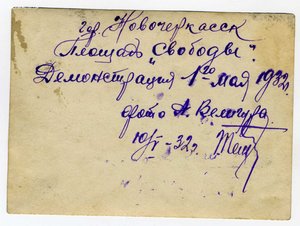 гор. Новочеркасск
Площадь "Свободы".
Демонстрация 1го мая 1932г.
фото А. Величура.
10/V-32г.